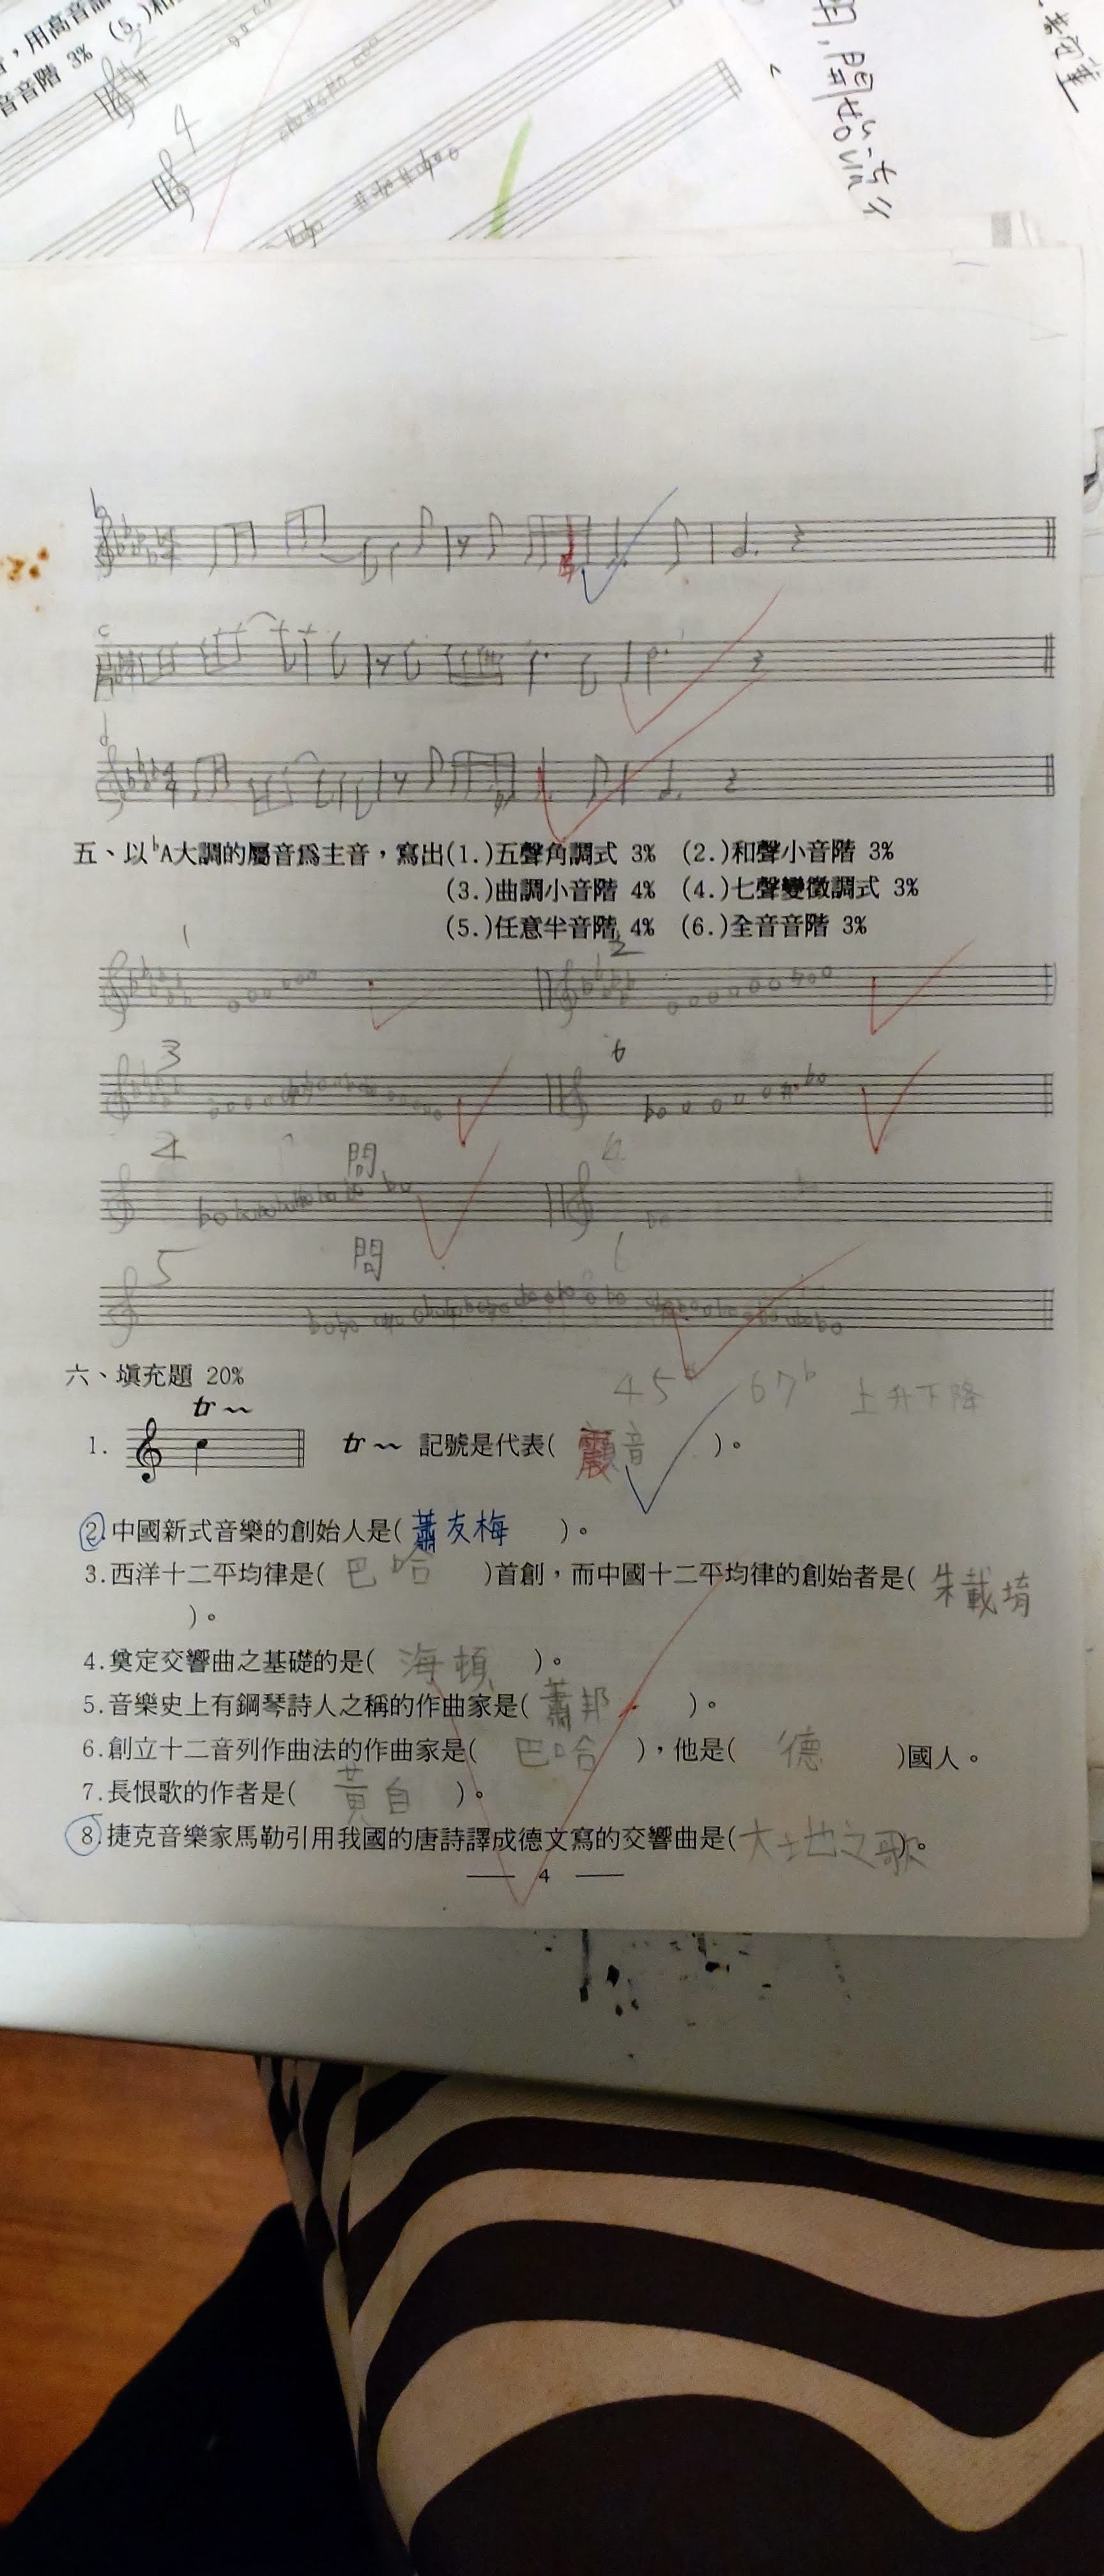 ，用高音
音音階 3% (5.)
4
開始
b
c
d
五、以♭A大調的屬音爲主音，寫出(1.)五聲角調式 3% (2.)和聲小音階 3%
(3.)曲調小音階 4% (4.)七聲變徵調式 3%
(5.)任意半音階 4% (6.)全音音階 3%
1 2
3 6
4 問
5 問
六、塡充題 20%
45# 67♭ 上升下降
tr~~
1. tr~~ 記號是代表( 顫音 )。
2.中國新式音樂的創始人是( 蕭友梅 )。
3.西洋十二平均律是( 巴哈 )首創，而中國十二平均律的創始者是( 朱載堉
)。
4.奠定交響曲之基礎的是( 海頓 )。
5.音樂史上有鋼琴詩人之稱的作曲家是( 蕭邦 )。
6.創立十二音列作曲法的作曲家是( 巴哈 )，他是( 德 )國人。
7.長恨歌的作者是( 黃自 )。
8.捷克音樂家馬勒引用我國的唐詩譯成德文寫的交響曲是(大地之歌)。
— 4 —